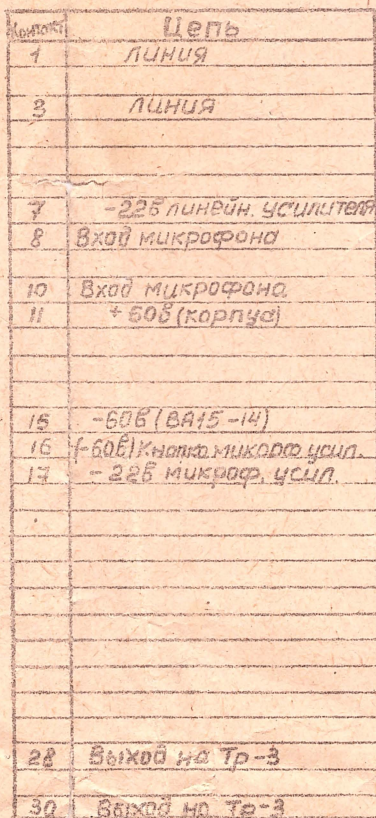 Контакт Цепь
1 линия
3 линия
7 -22в линейн. усилителя
8 Вход микрофона
10 Вход микрофона
11 +60в (корпус)
15 -60в (ВА15-14)
16 (-60в) Кнопка микроф. усил.
17 -22в микроф. усил.
28 Выход на Тр-3
30 Выход на Тр-3